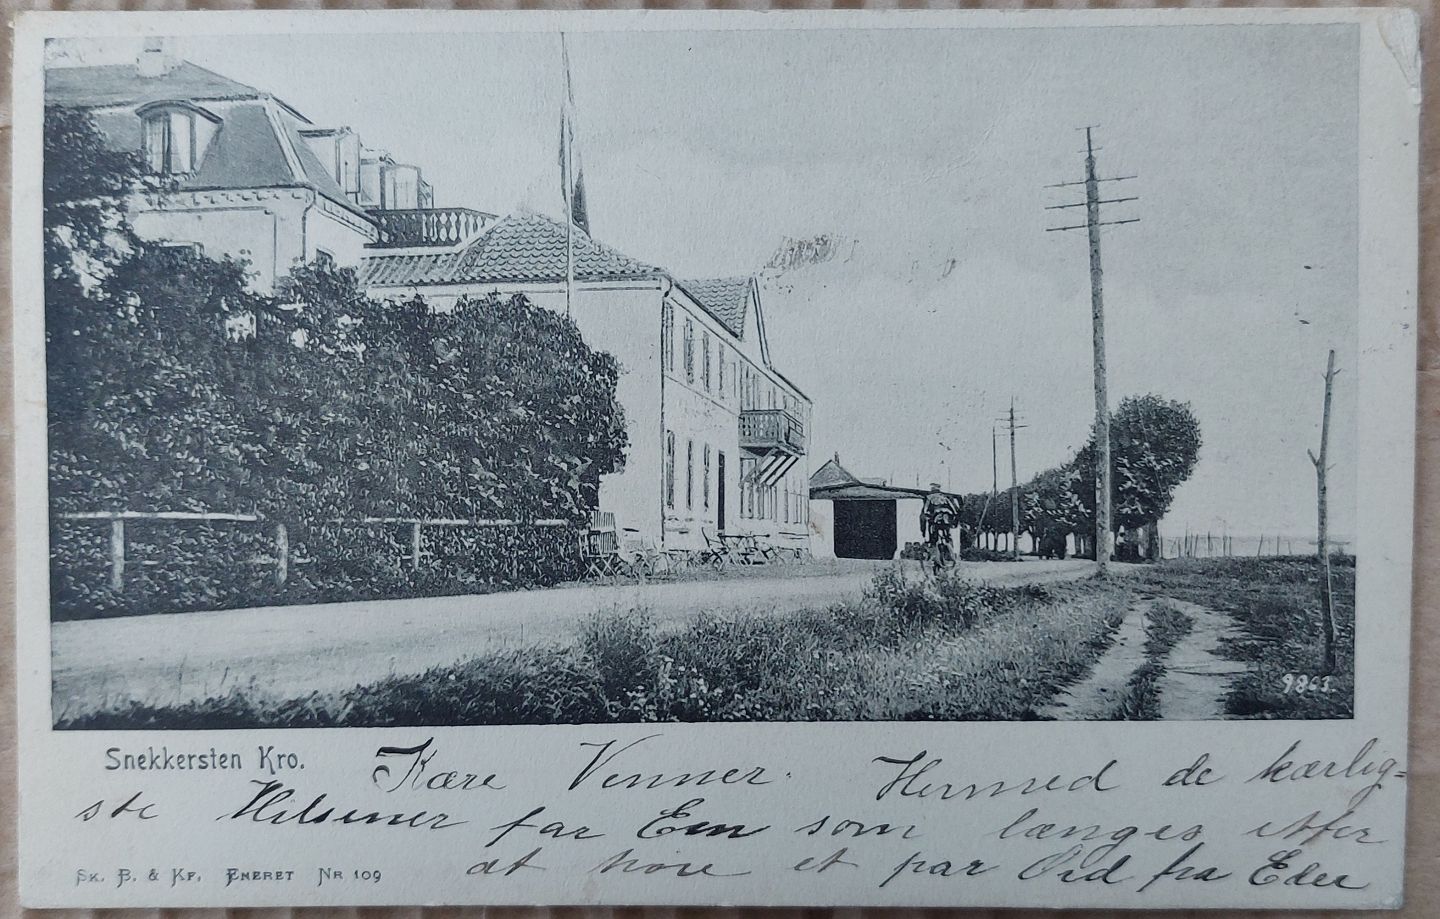 9863
Snekkersten Kro.
Kære Venner. Hermed de kærlig=
ste Hilsener far Een som længes etter
at höre et par Ord fra Eder
Sk. B. & Kf. Eneret Nr 109